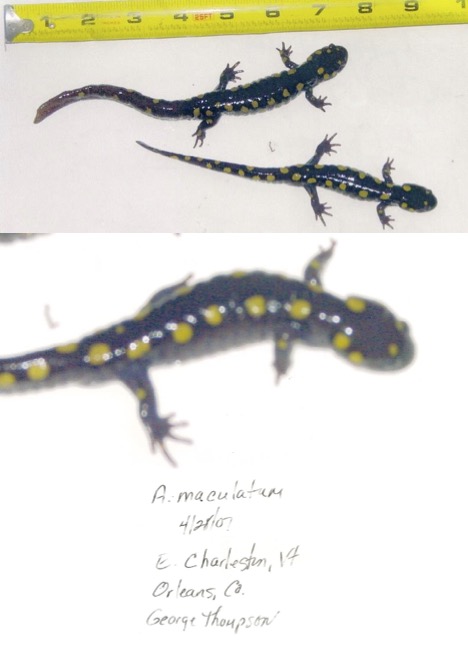 1 2 3 4 25FT 5 6 7 8 9 1
A. maculatum
E. Charleston, Vt
Orleans, Co.
George Thompson